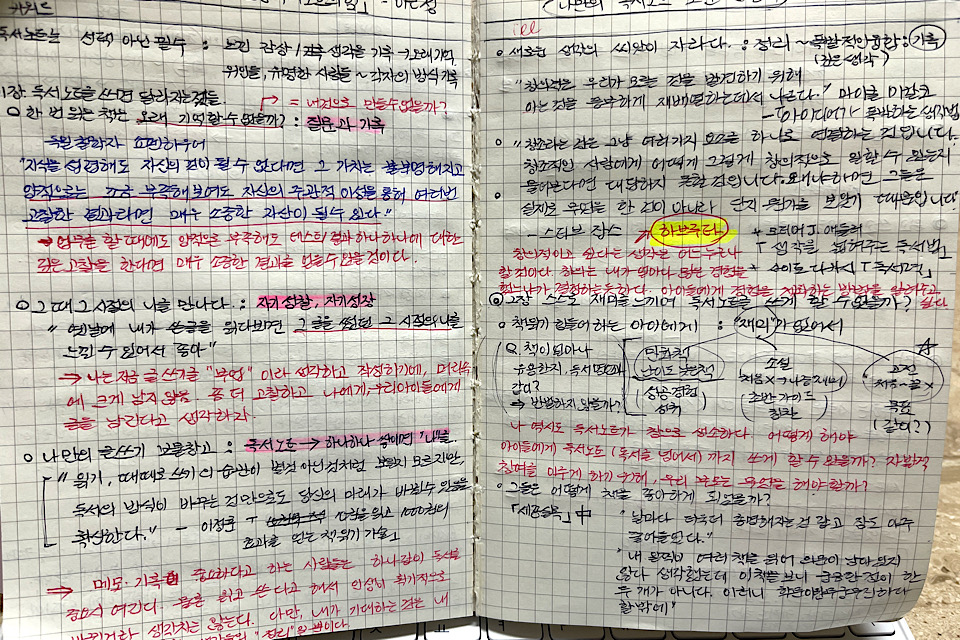 키워드
독서노트는 선택 아닌 필수 : 느낀 감상/ 생각을 기록 → 오래 기억.
위인들, 유명한 사람들 ~ 각자의 방식 기록
1장. 독서노트를 쓰면 달라지는 것들.
= 내것으로 만들 수 없을까?
한 번 읽은 책은 오래 기억할 수 없을까? : 질문과 기록
독일 철학자 쇼펜하우어
"지식을 섭렵해도 자신의 것이 될 수 없다면 그 가치는 불분명해지고
양적으로는 조금 부족해 보여도 자신의 주관적 이성을 통해 여러번
고찰한 결과라면 매우 소중한 자산이 될 수 있다."
→ 업무를 할 때에도 양적으로 부족해도 테스트/결과 하나하나에 대한
깊은 고찰을 한다면 매우 소중한 결과를 얻을 수 있을 것이다.
그때 그 시절의 나를 만나다. : 자기성찰, 자기성장
" 옛날에 내가 쓴 글을 읽다보면 그 글을 썼던 그 시절의 나를
느낄 수 있어서 좋아"
⇒ 나는 지금 글쓰기를 "부업" 이라 생각하고 작성하기에, 머릿속
에 크게 남지 않음. 좀 더 고찰하고 나에게, 우리아이들에게
글을 남긴다고 생각하자.
나만의 글쓰기 보물창고 : 독서노트 → 하나하나 쌓이면 "나"를.
" 읽기, 때때로 쓰기의 습관이 별것 아닌 것처럼 보일지 모르지만,
독서의 방식이 바꾸는 것만으로도 당신의 미래가 바뀔 수 있음을
확신한다." - 이정훈 「 10권을 읽고 1000권의
효과를 얻는 책읽기 기술」
⇒ 메모·기록 중요하다고 하는 사람들은 하나같이 독서를
중요시 여긴다. 물론 읽고 쓴다고 해서 인생이 획기적으로
생각지는 않는다. 다만, 내가 기대하는 것은 내
"정리"일 뿐이다.
새로운 생각의 씨앗이 자라다. : 정리 ~ 폭발적인 융합 : 기록
(깊은 생각)
"창의력은 우리가 모르는 것을 발견하기 위해
아는 것을 재배열하는데서 나온다." 마이클 미칼코
- 「아이디어가 폭발하는 생각법
"창조라는 것은 그냥 여러가지 요소를 하나로 연결하는 것입니다.
창조적인 사람에게 어떻게 그렇게 창의적으로 일할 수 있는지
물어본다면 대답하지 못할 것입니다. 왜냐하면 그들은
실제로 무언가를 한 것이 아니라 단지 뭔가를 보았기 때문입니다"
- 스티브 잡스 → 하브루타 + 모티머 J. 애들러
「생각을 넓혀주는 독서법」
창의적이고 싶다는 생각은 어느 누구나
할 것이다. 창의는 내가 얼마나 많은 경험을 + 사이토 다카시 「독서력」
했느냐가 결정하는 듯하다. 아이들에게 경험을 제공하는 방법을 알려주고
싶다
2장. 스스로 재미를 느끼며 독서노트를 쓰게 할 수 없을까?
책읽기 힘들어하는 아이에게 : "재미"가 있어서
Q. 책이 얼마나
유용한지, 독서
같이?
⇒ 방법하지 않을까?
만화책
난이도 낮은책
성공경험
성취
소설
처음 X → 나중 재미
초반 가이드
고전
처음~끝 X
목표
(같이?)
나 역시도 독서노트가 참으로 생소하다. 어떻게 해야
아이들에게 독서노트 (독서를 넘어서) 까지 쓰게 할 수 있을까? 자발적
참여를 이루게 하기 위해, 우리 부모는 무엇을 해야할까?
그들은 어떻게 책을 좋아하게 되었을까?
「세종실록」中
"날마다 더욱더 총명해지는 것 같고 잠도 아주
줄어들었다."
"내 일찍이 여러 책을 읽어 의문이 남아있지
않다 생각했는데 이 책을 보니 궁금한 점이 한
두 개가 아니다. 이러니
할 밖에"